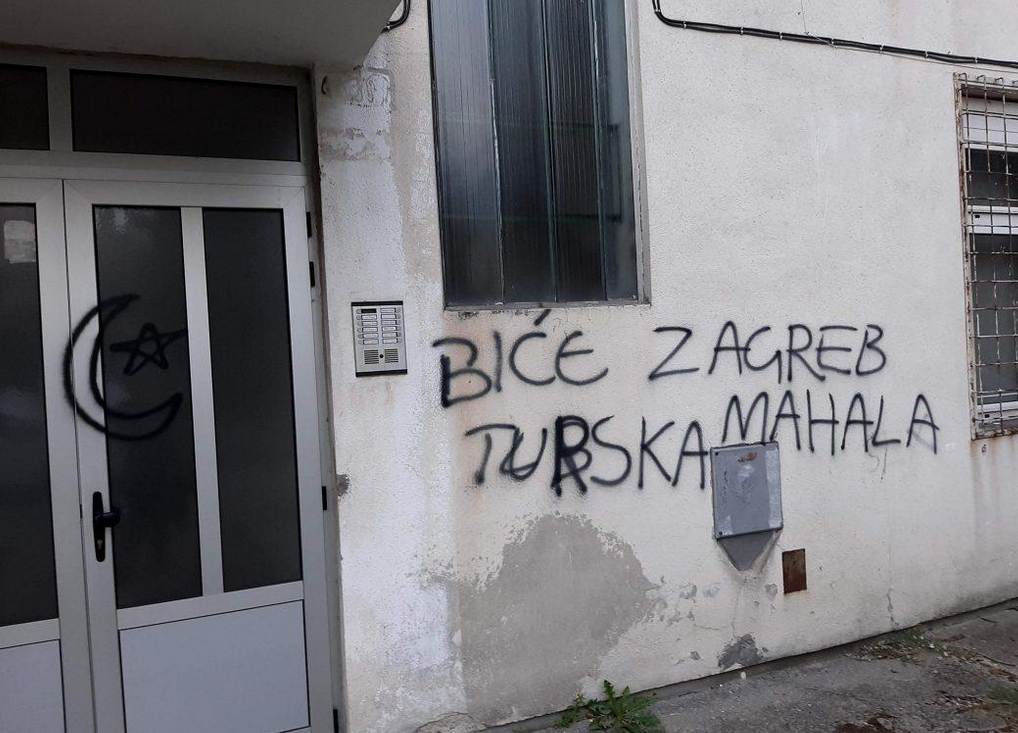 BIĆE ZAGREB
TURSKA MAHALA